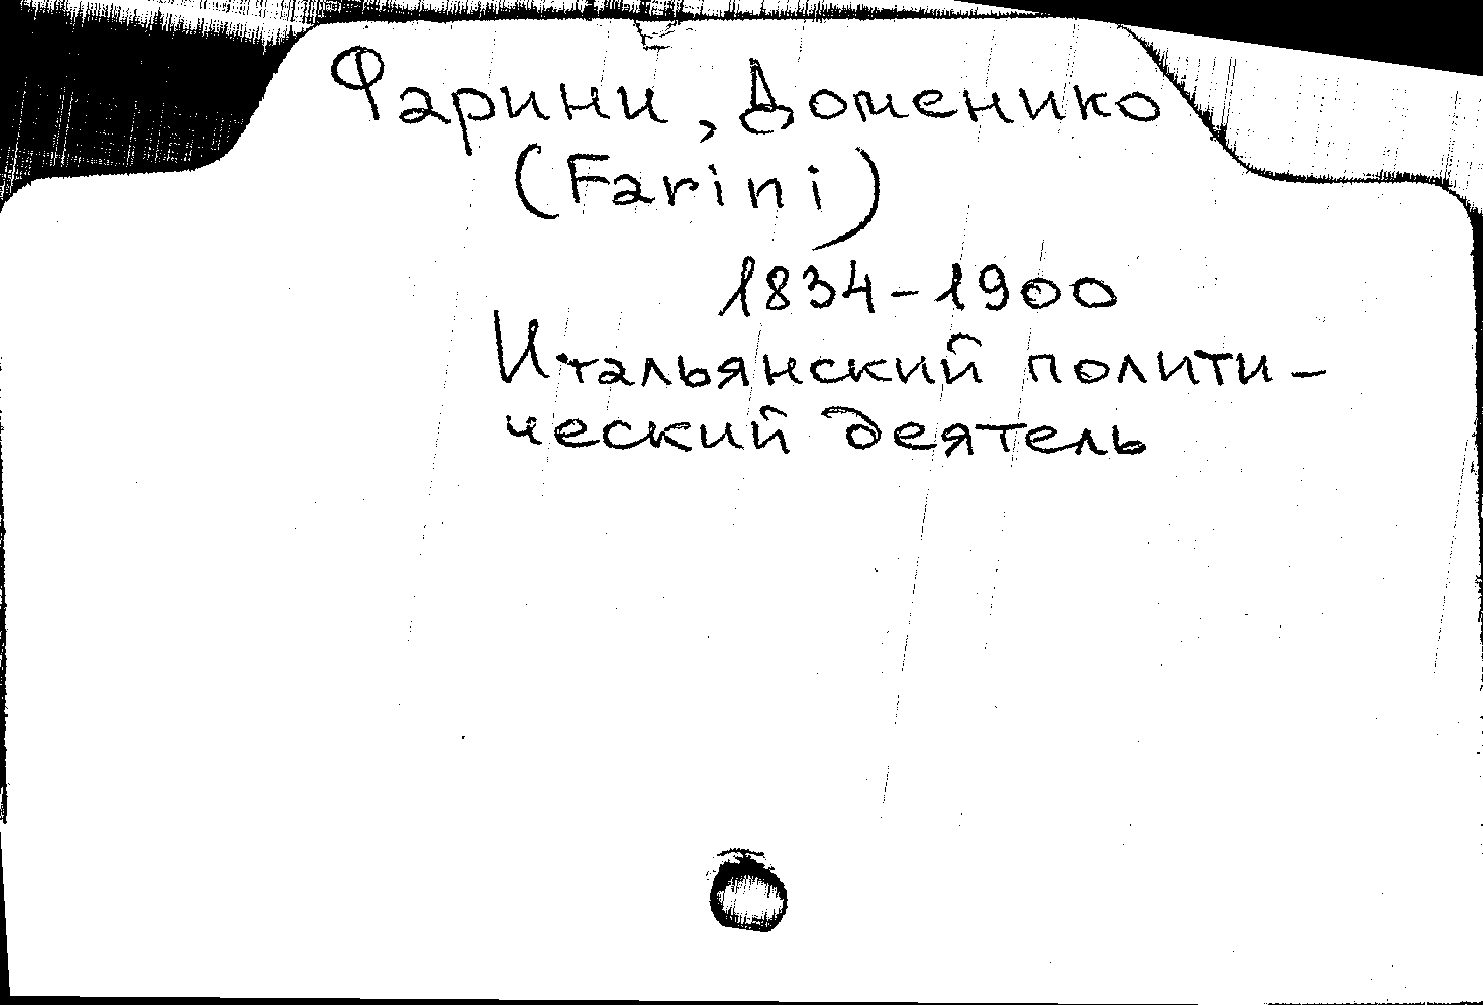 Фарини, Доменико
(Farini)
1834-1900
Итальянский полити-
ческий деятель